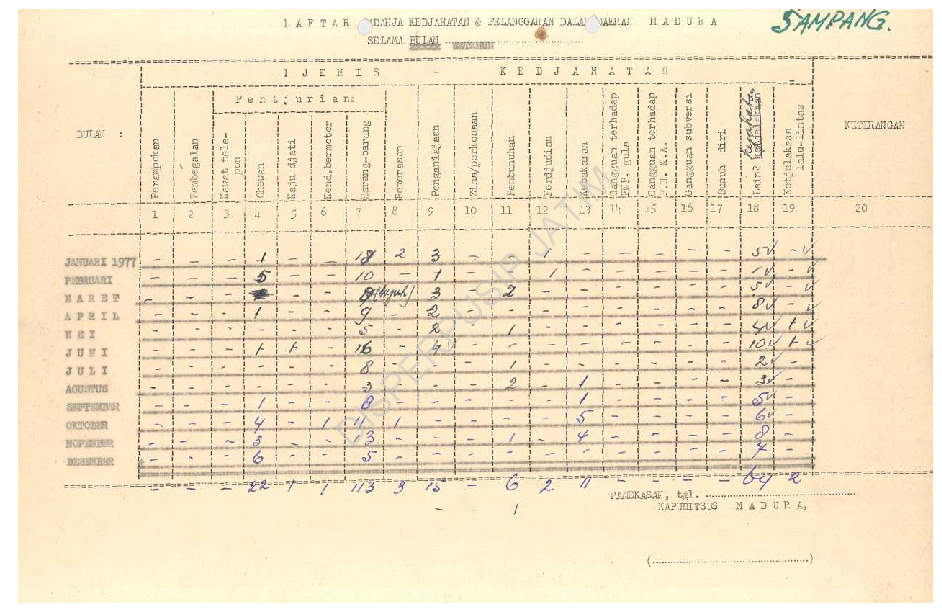 DAFTAR ADANJA KEDJAHATAN & PELANGGARAN DALAM DAERAH MADURA
SAMPANG.
SELAMA BULAN
DJENIS - KEDJAHATAN
Pentjurian:
BULAN :
Perampokan
Pembegalan
Kawat tele-pon
Chewan
Kaju djati
Kend.bermotor
Barang-barang
Pemerasan
Penganiajaan
Zina/perkosaan
Pembunuhan
Perdjudian
Pembakaran
Gangguan terhadap PNP. gula
Gangguan terhadap P.N.K.A.
Gangguan subversi
Bunuh diri
Lain2 kejahatan
Ketjelakaan lalu-lintas
KETERANGAN
1 2 3 4 5 6 7 8 9 10 11 12 13 14 15 16 17 18 19 20
JANUARI 1977 - - - 1 - - 18 2 3 - - 1 - - - - - 5v - v
PEBRUARI - - - 5 - - 10 - 1 - - 1 - - - - - 1v - v
MARET - - - - - 8 3 - 2 - - - - - - 5v - v
APRIL - - - 1 - - 9 - 2 - - - - - - - - 8v - v
MEI - - - - - - 5 - 2 - 1 - - - - - - 4v + v
JUNI - - - + + - 16 - 4 - - - - - - - - 10v + v
JULI - - - - - - 8 - - - 1 - - - - - - 2v -
AGUSTUS - - - - - - 3 - - - 2 - 1 - - - - 3v -
SEPTEMBER - - - 1 - - 8 - - - - - 1 - - - - 5v -
OKTOBER - - - 4 - 1 11 1 - - - - 5 - - - - 6v -
NOPEMBER - - - 3 - - 13 - - - 1 - 4 - - - - 8 -
DESEMBER - - - 6 - - 5 - - - - - - - - - - 7 -
- - - 22 1 1 113 3 15 - 6 2 11 - - - - 64 2
PAMEKASAN, tgl.
- 1 KAPEHITSUS MADURA,
(..............................)
DISPERPUSIP JATIM